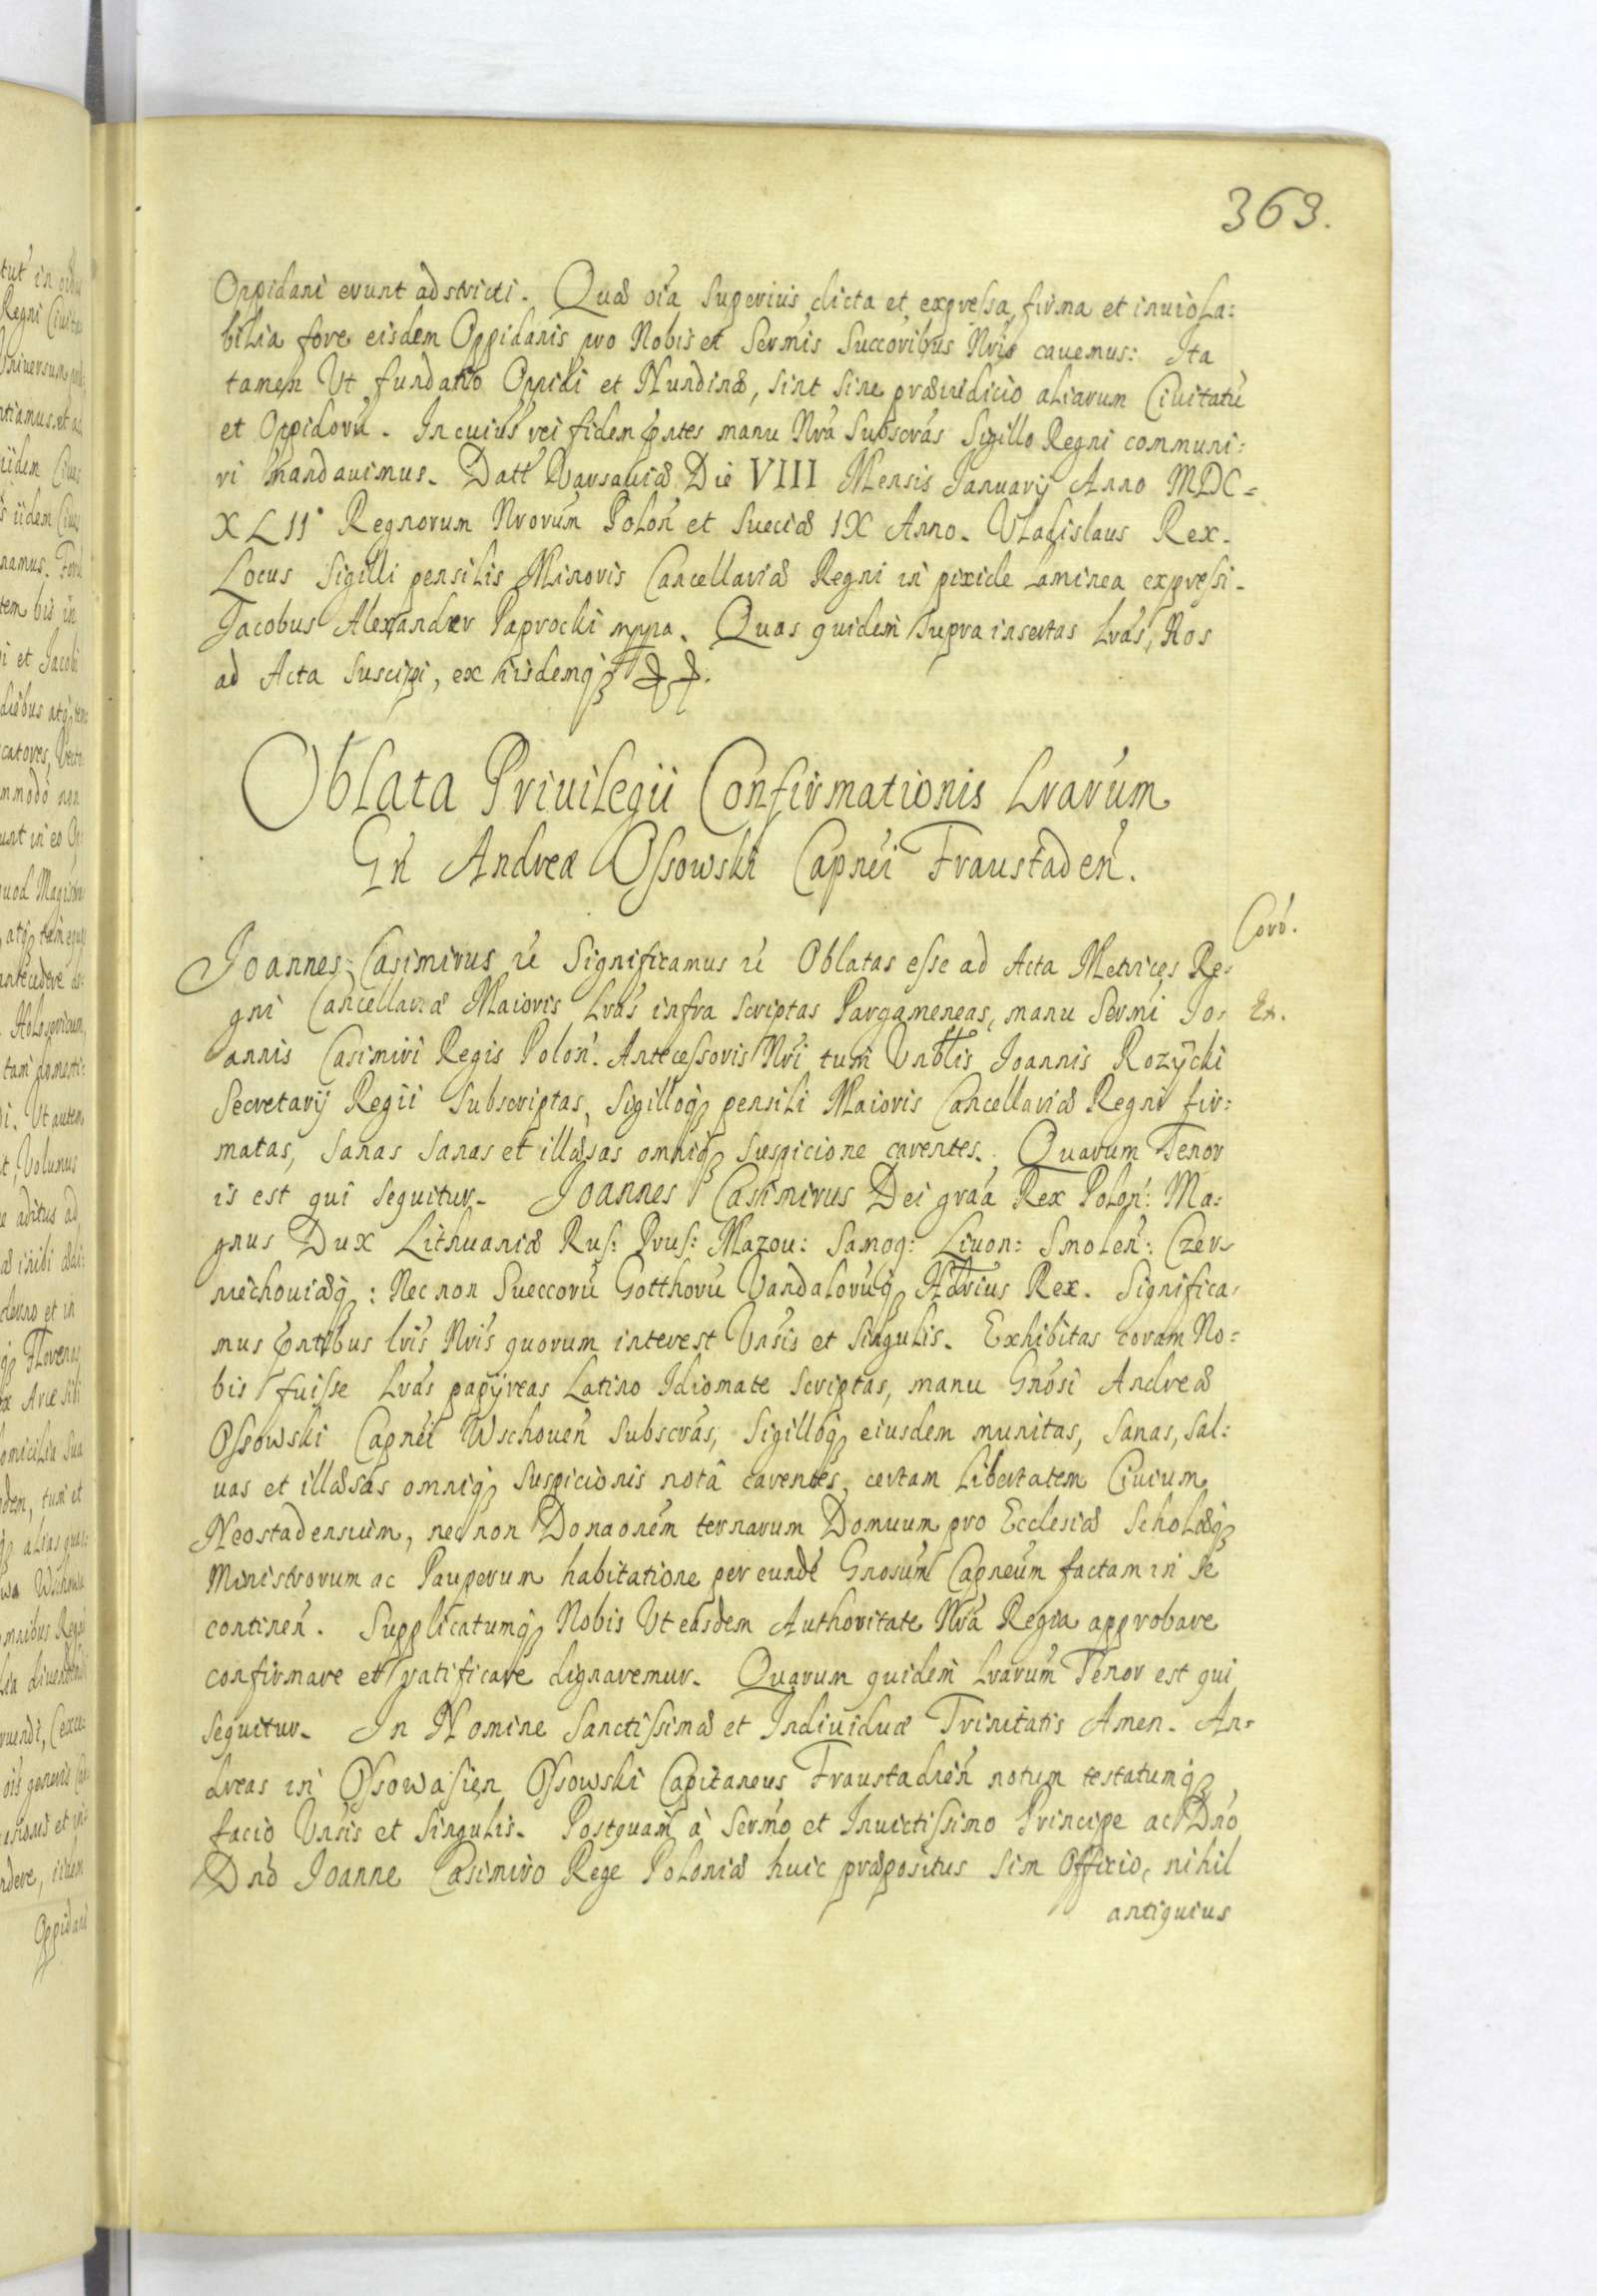 363.
Oppidani erunt adstricti. Quæ oīa superius dicta et expressa firma et inuiola:
bilia fore eisdem Oppidanis pro Nobis et Sermis Succoribus Nris cauemus: Ita
tamen Vt fundatio Oppidi et Nundinæ, sint sine præiudicio aliarum Ciuitatū
et Oppidorū. In cuius rei fidem pntes manu Nrā Subscrās Sigillo Regni communi:
ri mandauimus. Datt Varsauiæ Die VIII Mensis Januarij Anno MDC=
XLII° Regnorum Nrorum Polon̄ et Sueciæ IX Anno. Vladislaus Rex.
Locus Sigilli pensilis Minoris Cancellariæ Regni in pixide laminea expressi.
Jacobus Alexander Paprocki mppa. Quas quidem supra insertas Lrās, Nos
ad Acta suscipi, ex iisdemq́
Oblata Priuilegii Confirmationis Lrarum
Gn̄ Andreæ Ossowski Capnei Fraustaden̄.
Joannes Casimirus re Significamus re Oblatas esse ad Acta Metrices Re:
Corб.
gni Cancellariæ Maioris Lrās infra scriptas Pargameneas, manu Sermi Jo:
Ex.
annis Casimiri Regis Polon̄. Antecessoris Nri tum Vnbtlis Joannis Rozycki
Secretarij Regii Subscriptas, Sigilloq́ pensili Maioris Cancellariæ Regni fir:
matas, sanas sanas et illæsas omniq́ suspicione carentes. Quarum Tenor
is est qui sequitur. Joannes Casimirus Dei graā Rex Polon̄: Ma:
gnus Dux Lithuaniæ Rus: Prus: Mazou: Samog: Liuon: Smolen̄: Czer-
niechouiæq́: Nec non Sueccorū Gotthorū Vandalorumq́ Hdrius Rex. Significa:
mus pntibus lris Nris quorum interest Vnsis et singulis. Exhibitas coram No:
bis fuisse Lrās papyreas Latino Idiomate scriptas, manu Gnosi Andreæ
Ossowski Capnei Wschouen̄ subscrās, Sigilloq́ eiusdem munitas, sanas, sal:
uas et illæsas omniq́ suspicionis notâ carentes, certam Libertatem Ciuium
Neostadensium, nec non Donaonem ternarum Domuum pro Ecclesiæ Scholæq́
Ministrorum ac Pauperum habitatione per eundē Gnosum Capneum factam in se
continen̄. Supplicatumq́ Nobis Vt easdem Authoritate Nrā Regia approbare
confirmare et ratificare dignaremur. Quarum quidem Lrarum Tenor est qui
sequitur. In Nomine Sanctissimæ et Indiuiduæ Trinitatis Amen. An:
dreas in Ossowasien Ossowski Capitaneus Fraustadien̄ notum testatumq́
facio Vnsis et singulis. Postquam à Sermo et Inuictissimo Principe ac Dno
Dno Joanne Casimiro Rege Poloniæ huic præpositus sim Officio, nihil
antiquius